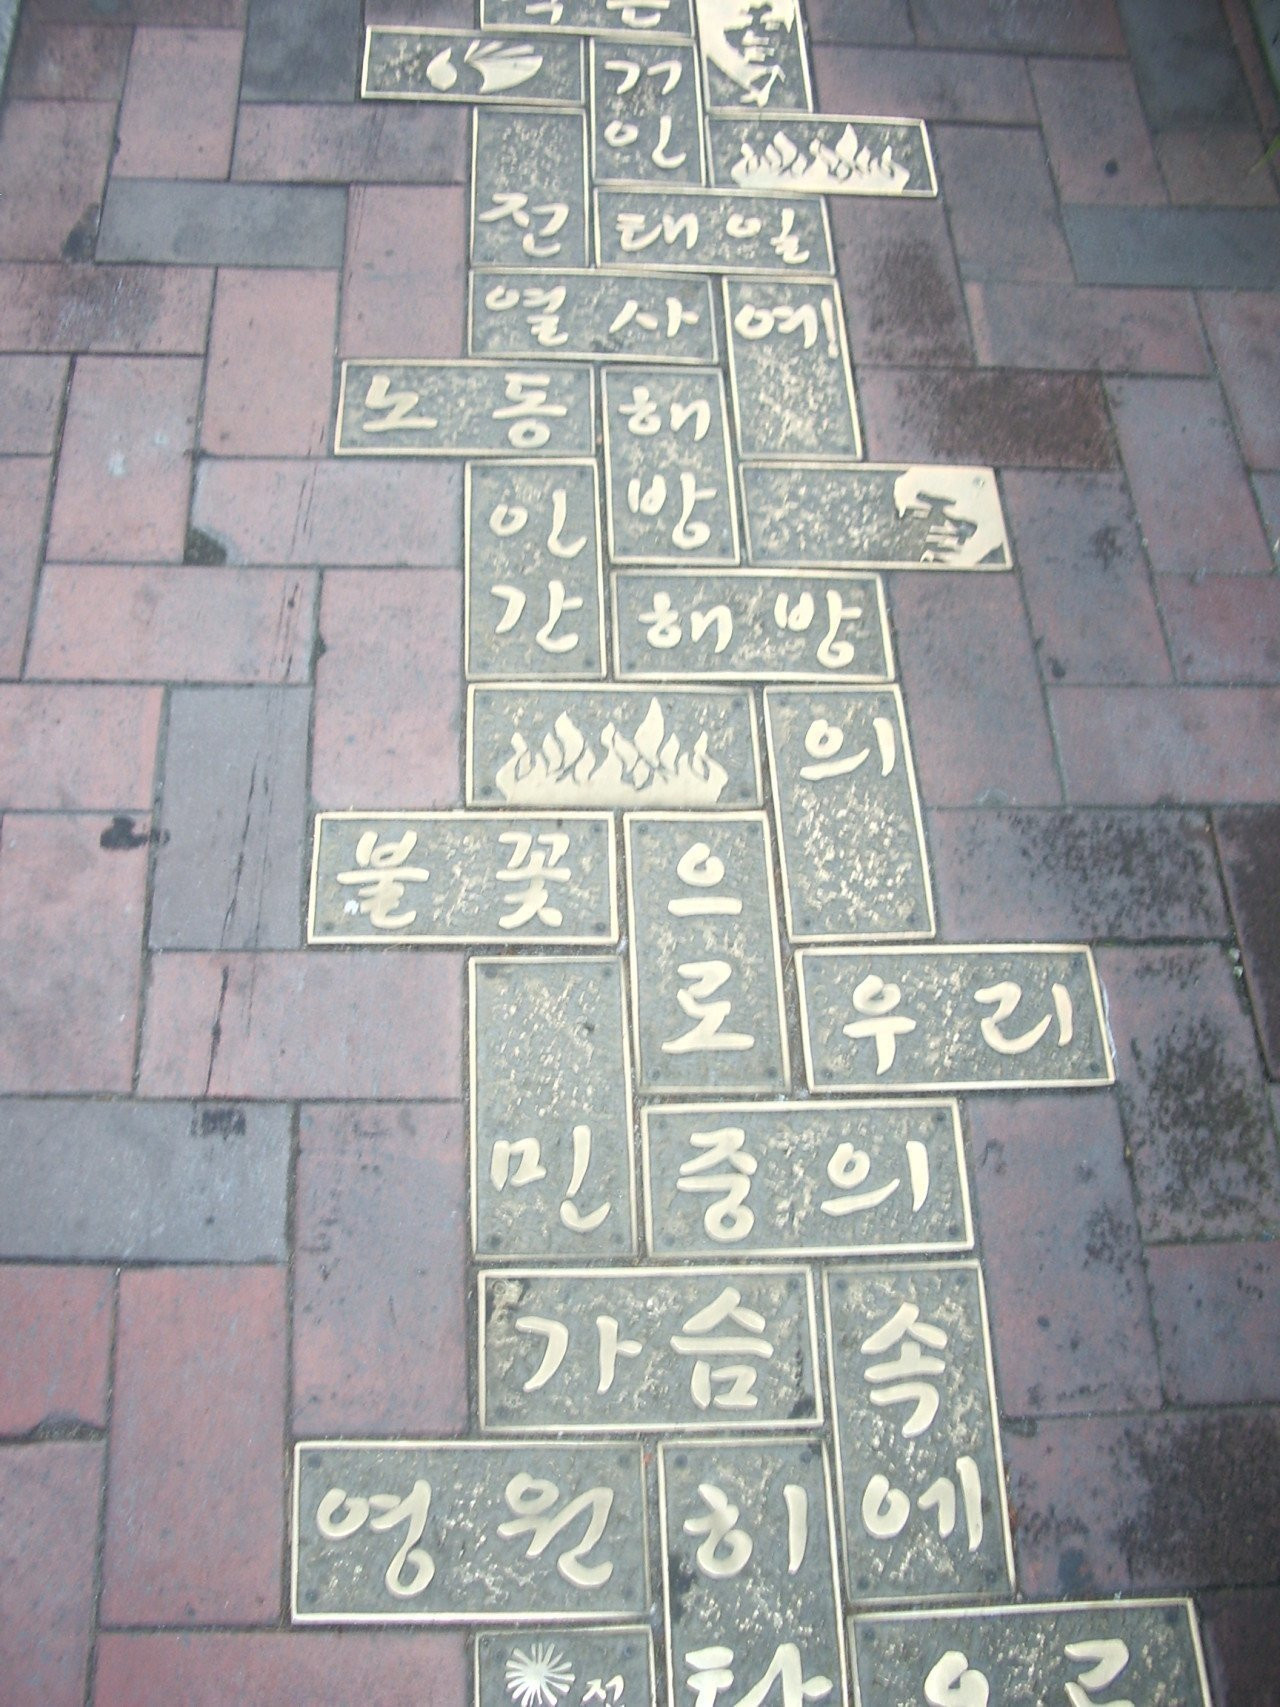 거인
전태일
열사여!
노동해방
인간해방
의
불꽃으로
우리
민중의
가슴속에
영원히
타오르
전